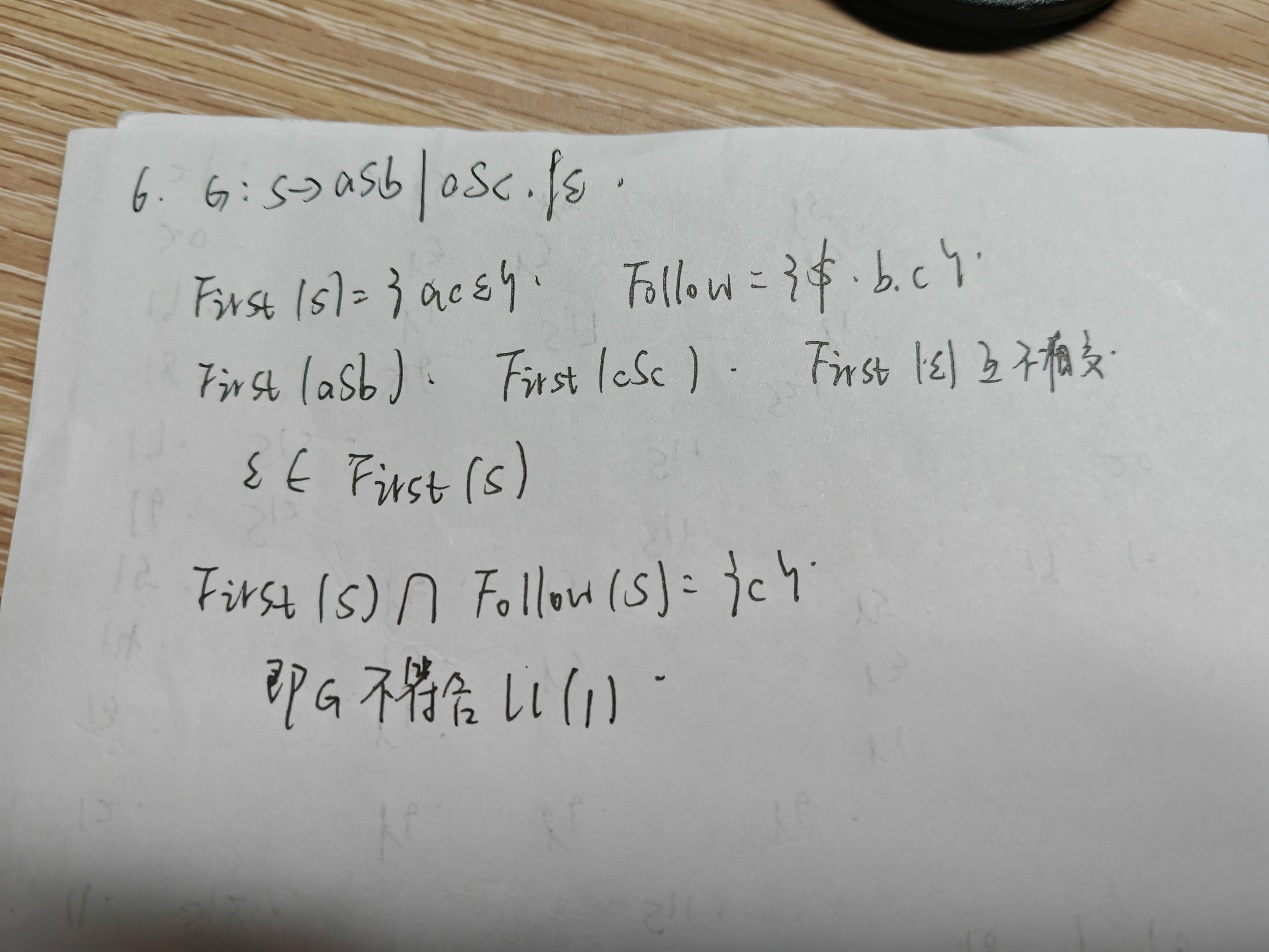 6. G: S→aSb|aSc.|ε.
First(S)={acε}. Follow={$.b.c}.
First(aSb). First(cSc). First(ε)互不相交.
ε∈First(S)
First(S)∩Follow(S)={c}.
即G不符合LL(1)